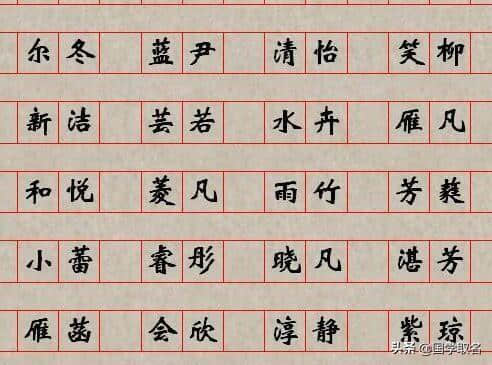 尔冬 蓝尹 清怡 笑柳
新洁 芸若 水卉 雁凡
和悦 菱凡 雨竹 芳蕤
小蕾 睿彤 晓凡 湛芳
雁菡 会欣 淳静 紫琼
头条 @国学取名